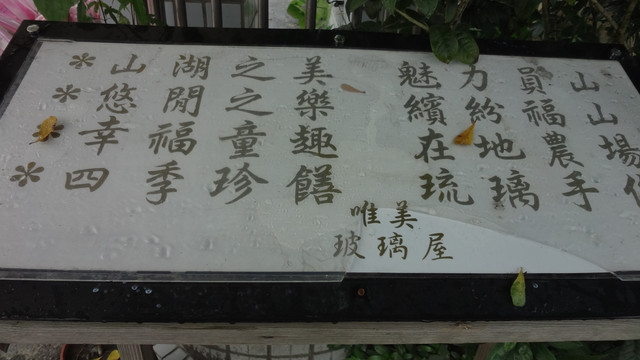 * 山湖之美
* 悠閒之樂
* 幸福童趣
* 四季珍饍
魅力員山
繽紛福山
在地農場
琉璃手
唯美
玻璃屋